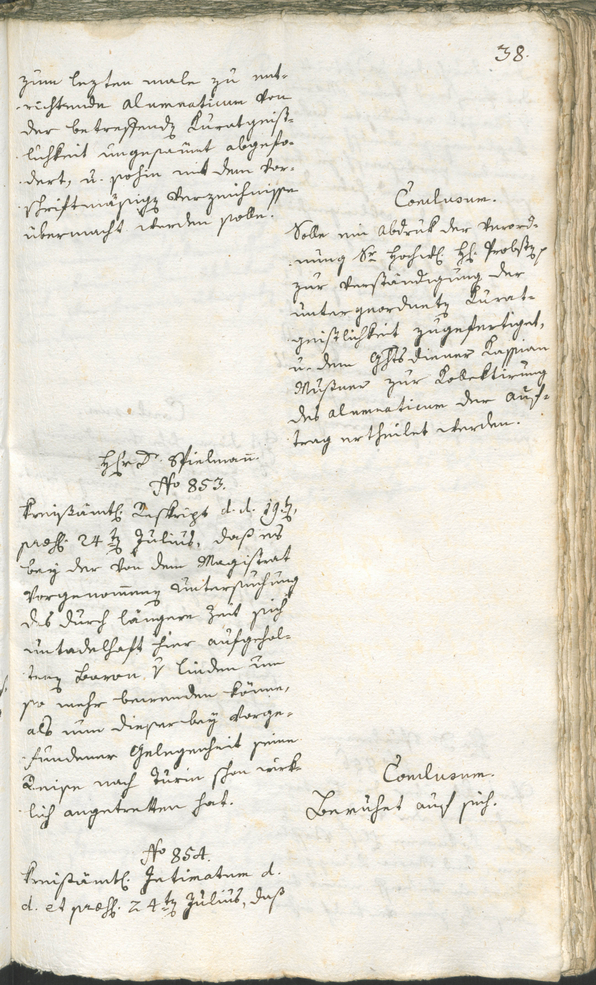 38.
zum lezten male zu ent-
richtende Alumnaticum von
der betreffenden Kuratgeist-
lichkeit ungesäumt abgefo-
dert, u. sohin mit dem vor-
schriftmäßigen Verzeichnisse
übermacht werden solle.
Conclusum.
Solle ein Abdruk der Verord-
nung Sr. Hochw. H. Probsten
zur Verständigung der
untergeordneten Kurat-
geistlichkeit zugefertiget,
u. dem Ghtsdiener Kassian
Mußner zur Kollektirung
des Alumnaticum der Auf-
trag ertheilet werden.
Hhr D. Spielmann.
No 853.
Kreisämtl. Reskript d. d. 19ten,
præs. 24ten Julius, daß es
bey der von dem Magistrat
vorgenommenen Untersuchung
des durch längere Zeit sich
untadelhaft hier aufgehal-
tenen Baron v Linden um
so mehr bewenden könne,
als nun dieser bey vorge-
fundener Gelegenheit seine
Reise nach Turin schon wirk-
lich angetretten hat.
Conclusum.
Beruhet auf sich.
No 854.
Kreisämtl. Intimatum d.
d. et præs. 24ten Julius, daß